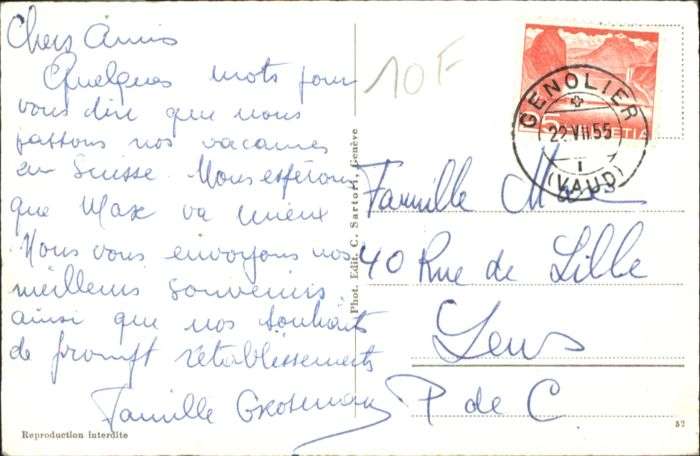 Chers Amis
Quelques mots pour
vous dire que nous
passons nos vacances
en Suisse. Nous espérons
que Max va mieux
Nous vous envoyons nos
meilleurs souvenirs
ainsi que nos souhaits
de prompt rétablissements
Famille
Reproduction interdite
Phot. Edit. C. Sartori, Genève
10F
5
HELVETIA
GENOLIER
22.VII.55
1
(VAUD)
Famille
40 Rue de Lille
Lens
P de C
52